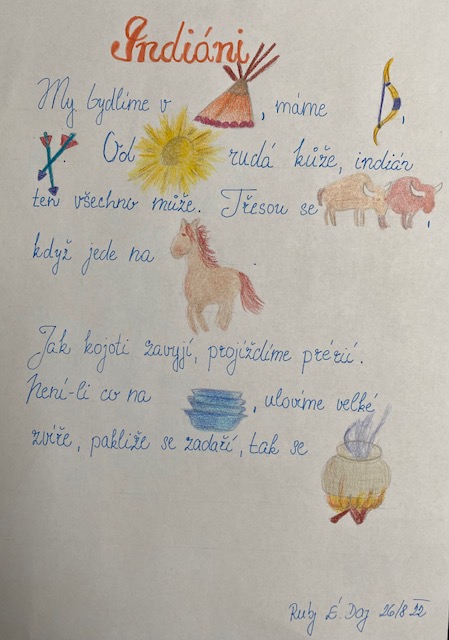 Indiáni
My bydlíme v , máme ,
. Od rudá kůže, indián
ten všechno může. Třesou se ,
když jede na
Jak kojoti zavyjí, projíždíme prérií.
Není-li co na , ulovíme velké
zvíře, pakliže se zadaří, tak se
Ruby É. Daj 26/8 22